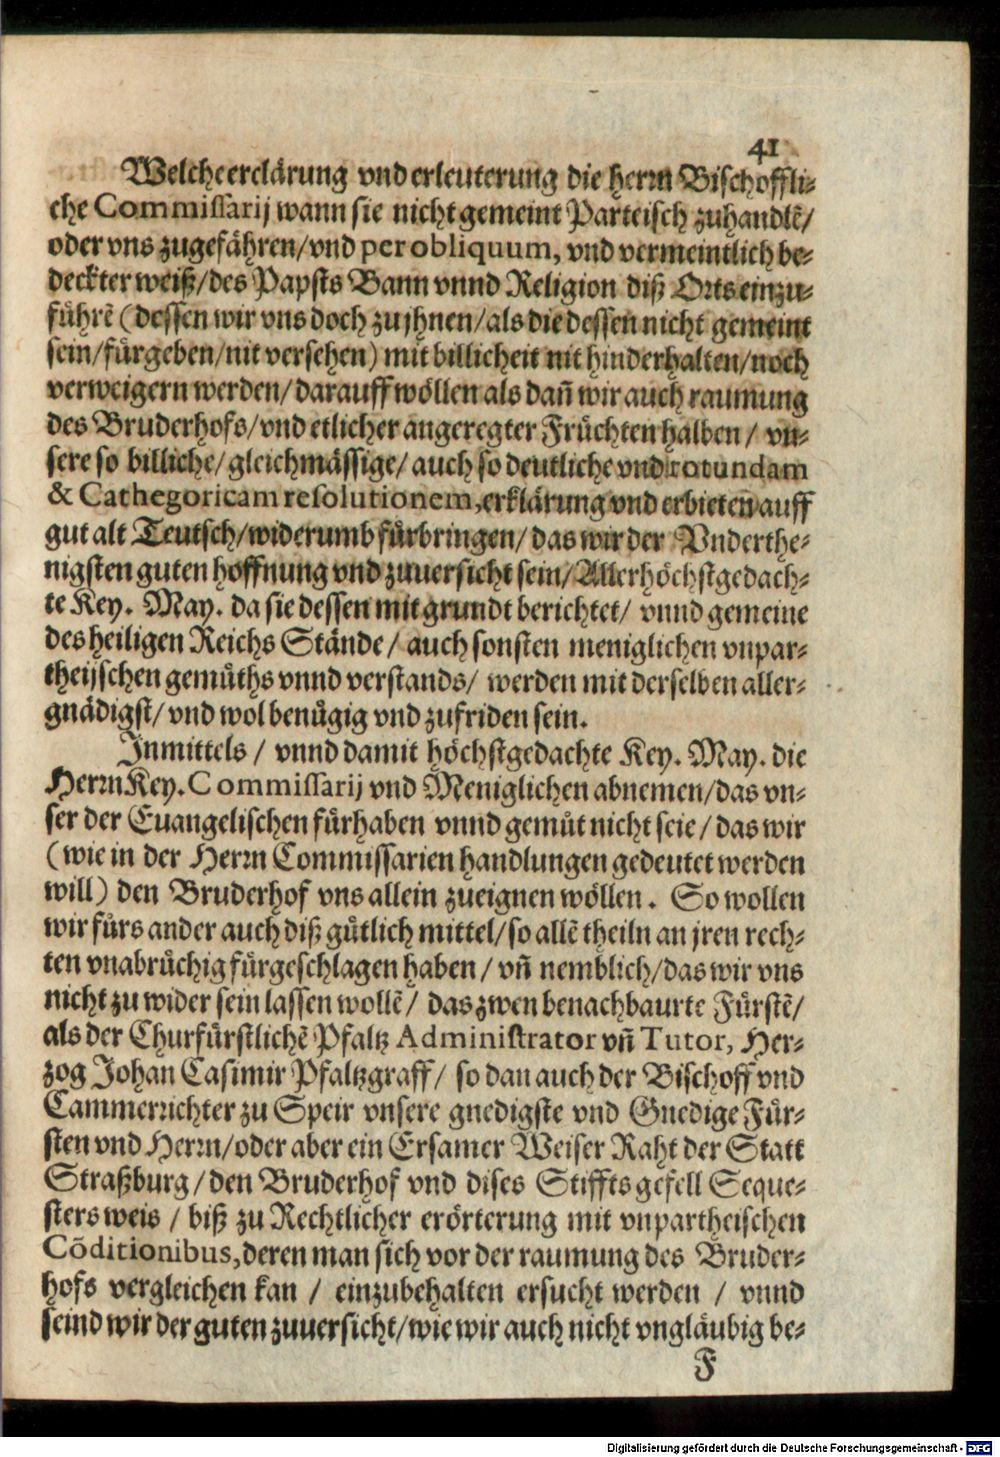 41
Welche erclärung vnd erleuterung die herrn Bischoffli-
che Commissarij wann sie nicht gemeint Parteisch zuhandlẽ/
oder vns zugefähren/vnd per obliquum, vnd vermeintlich be-
deckter weiß/des Papsts Bann vnnd Religion diß Orts einzu-
führẽ (dessen wir vns doch zu jhnen/als die dessen nicht gemeint
sein/fürgeben/nit versehen) mit billicheit nit hinderhalten/noch
verweigern werden/darauff wöllen als dañ wir auch raumung
des Bruderhofs/vnd etlicher angeregter Früchten halben/ vn-
sere so billiche/gleichmässige/auch so deutliche vnd rotundam
& Cathegoricam resolutionem,erklärung vnd erbieten auff
gut alt Teutsch/widerumb fürbringen/das wir der Vnderthe-
nigsten guten hoffnung vnd zuuersicht sein/Allerhöchstgedach-
te Key. May. da sie dessen mit grundt berichtet/ vnnd gemeine
des heiligen Reichs Stände/ auch sonsten meniglichen vnpar-
theijschen gemůths vnnd verstands/ werden mit derselben aller-
gnädigst/vnd wol benůgig vnd zufriden sein.
Inmittels / vnnd damit höchstgedachte Key. May. die
Herrn Key. Commissarij vnd Meniglichen abnemen/das vn-
ser der Euangelischen fürhaben vnnd gemůt nicht seie/das wir
(wie in der Herrn Commissarien handlungen gedeutet werden
will) den Bruderhof vns allein zueignen wöllen. So wollen
wir fürs ander auch diß gůtlich mittel/so allẽ theiln an jren rech-
ten vnabrůchig fürgeschlagen haben/vñ nemblich/das wir vns
nicht zu wider sein lassen wollẽ/ das zwen benachbaurte Fürstẽ/
als der Churfürstlichẽ Pfaltz Administrator vñ Tutor, Her-
zog Johan Casimir Pfaltzgraff/ so dan auch der Bischoff vnd
Cammerrichter zu Speir vnsere gnedigste vnd Gnedige Für-
sten vnd Herrn/oder aber ein Ersamer Weiser Raht der Statt
Straßburg/den Bruderhof vnd dises Stiffts gefell Seque-
sters weis / biß zu Rechtlicher erörterung mit vnpartheischen
Cõditionibus,deren man sich vor der raumung des Bruder-
hofs vergleichen kan / einzubehalten ersucht werden / vnnd
seind wir der guten zuuersicht/wie wir auch nicht vngläubig be-
F
Digitalisierung gefördert durch die Deutsche Forschungsgemeinschaft - DFG